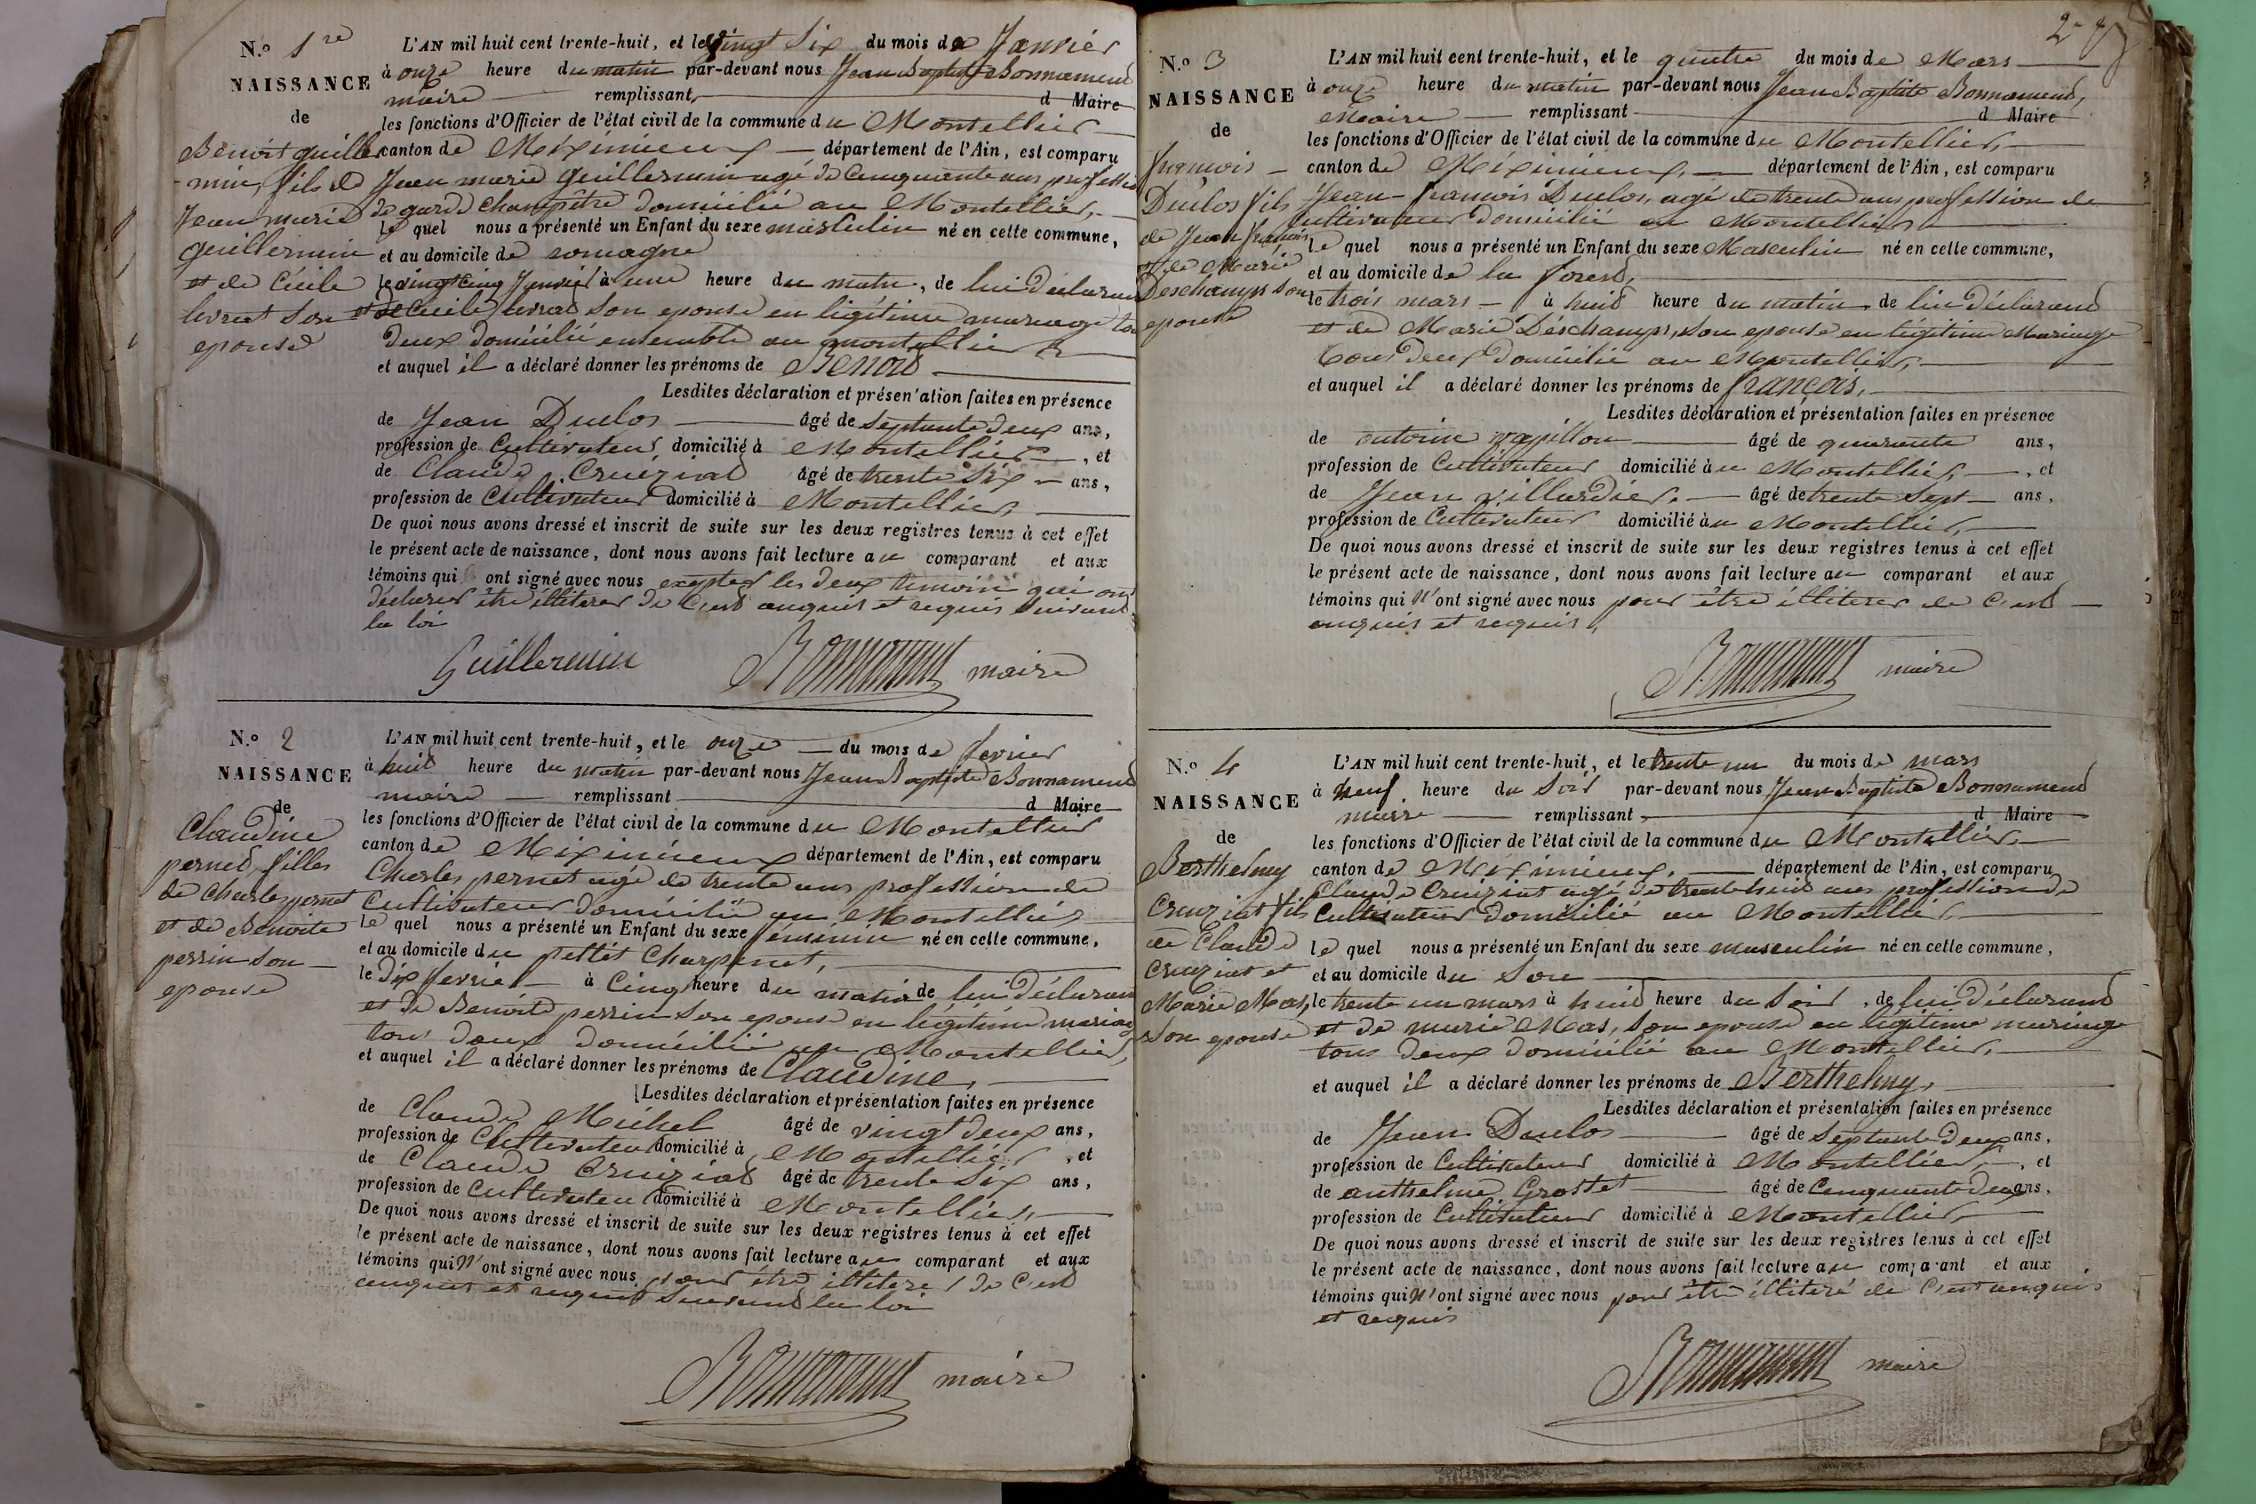 N.º 1re
NAISSANCE
de
Benoit guiller
-min, fils de
Jean marie
guillermin
et de Cécile
levrat son
epouse
L'AN mil huit cent trente-huit, et le vingt Six du mois de Janvier
à onze heure du matin par-devant nous Jean Baptiste Bonnamend
maire remplissant d Maire
les fonctions d'Officier de l'état civil de la commune du Montellier
canton de Méximieux département de l'Ain, est comparu
Jean marie guillermin agé de Cinquante ans profession
de garde champêtre domicilié au Montellier,
le quel nous a présenté un Enfant du sexe masculin né en cette commune,
et au domicile de romagne
le vingt cinq Janvier à une heure du matin, de lui déclarant
et de Cécile levrat son epouse en légitime mariage tous
deux domicilié ensemble au montellier
et auquel il a déclaré donner les prénoms de Benoit
Lesdites déclaration et présentation faites en présence
de Jean Duclos âgé de septante deux ans,
profession de Cultivateur domicilié à Montellier, et
de Claude Cruiziat âgé de trente six ans,
profession de Cultivateur domicilié à Montellier,
De quoi nous avons dressé et inscrit de suite sur les deux registres tenus à cet effet
le présent acte de naissance, dont nous avons fait lecture au comparant et aux
témoins qui ont signé avec nous exepter les deux temoins qui ont
déclarer être illiterer de Cest enquis et requis suivant
la loi
Guillermin Bonnamend maire
N.º 2
NAISSANCE
de
Claudine
pernet, filles
de Charles pernet
et de Benoite
perrin son
epouse
L'AN mil huit cent trente-huit, et le onze du mois de fevrier
à huit heure du matin par-devant nous Jean Baptiste Bonnamend
maire remplissant d Maire
les fonctions d'Officier de l'état civil de la commune du Montellier
canton de Méximieux département de l'Ain, est comparu
Charles pernet agé de trente ans profession de
Cultivateur domicilié au Montellier,
le quel nous a présenté un Enfant du sexe féminin né en cette commune,
et au domicile du pettit Charpenet,
le Dix fevrier à Cinq heure du matin de lui déclarant
et de Benoite perrin son epouse en légitime mariage
tous deux domicilié au Montellier,
et auquel il a déclaré donner les prénoms de Claudine,
Lesdites déclaration et présentation faites en présence
de Claude Michel âgé de vingt deux ans,
profession de Cultivateur domicilié à Montellier, et
de Claude Cruiziat âgé de trente six ans,
profession de Cultivateur domicilié à Montellier,
De quoi nous avons dressé et inscrit de suite sur les deux registres tenus à cet effet
le présent acte de naissance, dont nous avons fait lecture au comparant et aux
témoins qui n'ont signé avec nous pour être illiterer de C'est
enquis et requis suivant la loi
Bonnamend maire
2
N.º 3
NAISSANCE
de
françois
Duclos fils
de Jean françois
et de Marie
Deschamps son
epouse
L'AN mil huit cent trente-huit, et le quatre du mois de Mars
à onze heure du matin par-devant nous Jean Baptiste Bonnamend,
Maire remplissant d Maire
les fonctions d'Officier de l'état civil de la commune du Montellier,
canton de Méximieux, département de l'Ain, est comparu
Jean françois Duclos, agé de trente ans profession de
Cultivateur domicilié au Montellier
le quel nous a présenté un Enfant du sexe Masculin né en cette commune,
et au domicile de la forest,
le trois mars à huit heure du matin de lui déclarant
et de Marie Déschamps, son epouse en légitime Mariage
tous deux domicilié au Montellier,
et auquel il a déclaré donner les prénoms de françois,
Lesdites déclaration et présentation faites en présence
de antoine papillon âgé de quarante ans,
profession de Cultivateur domicilié au Montellier, et
de Jean Villardier, âgé de trente sept ans,
profession de Cultivateur domicilié au Montellier,
De quoi nous avons dressé et inscrit de suite sur les deux registres tenus à cet effet
le présent acte de naissance, dont nous avons fait lecture au comparant et aux
témoins qui n'ont signé avec nous pour être illiterer de C'est
enquis et requis,
Bonnamend maire
N.º 4
NAISSANCE
de
Berthelmy
Cruiziat fils
de Claude
Cruiziat et
Marie Mas,
son epouse
L'AN mil huit cent trente-huit, et le trente un du mois de mars
à neuf heure du Soir par-devant nous Jean Baptiste Bonnamend
maire remplissant d Maire
les fonctions d'Officier de l'état civil de la commune du Montellier,
canton de Méximieux, département de l'Ain, est comparu
Claude Cruiziat agé de trente huit ans profession de
Cultivateur domicilié au Montellier,
le quel nous a présenté un Enfant du sexe masculin né en cette commune,
et au domicile du Sou
le trente un mars à huit heure du Soir, de lui déclarant
et de marie Mas, son epouse en légitime mariage
tous deux domicilié au Montellier,
et auquel il a déclaré donner les prénoms de Berthelmy,
Lesdites déclaration et présentation faites en présence
de Jean Duclos âgé de Septante deux ans,
profession de Cultivateur domicilié à Montellier, et
de anthelme Grostet âgé de Cinquante deux ans,
profession de Cultivateur domicilié à Montellier,
De quoi nous avons dressé et inscrit de suite sur les deux registres tenus à cet effet
le présent acte de naissance, dont nous avons fait lecture au comparant et aux
témoins qui n'ont signé avec nous pour être illiteré de C'est enquis
et requis
Bonnamend maire